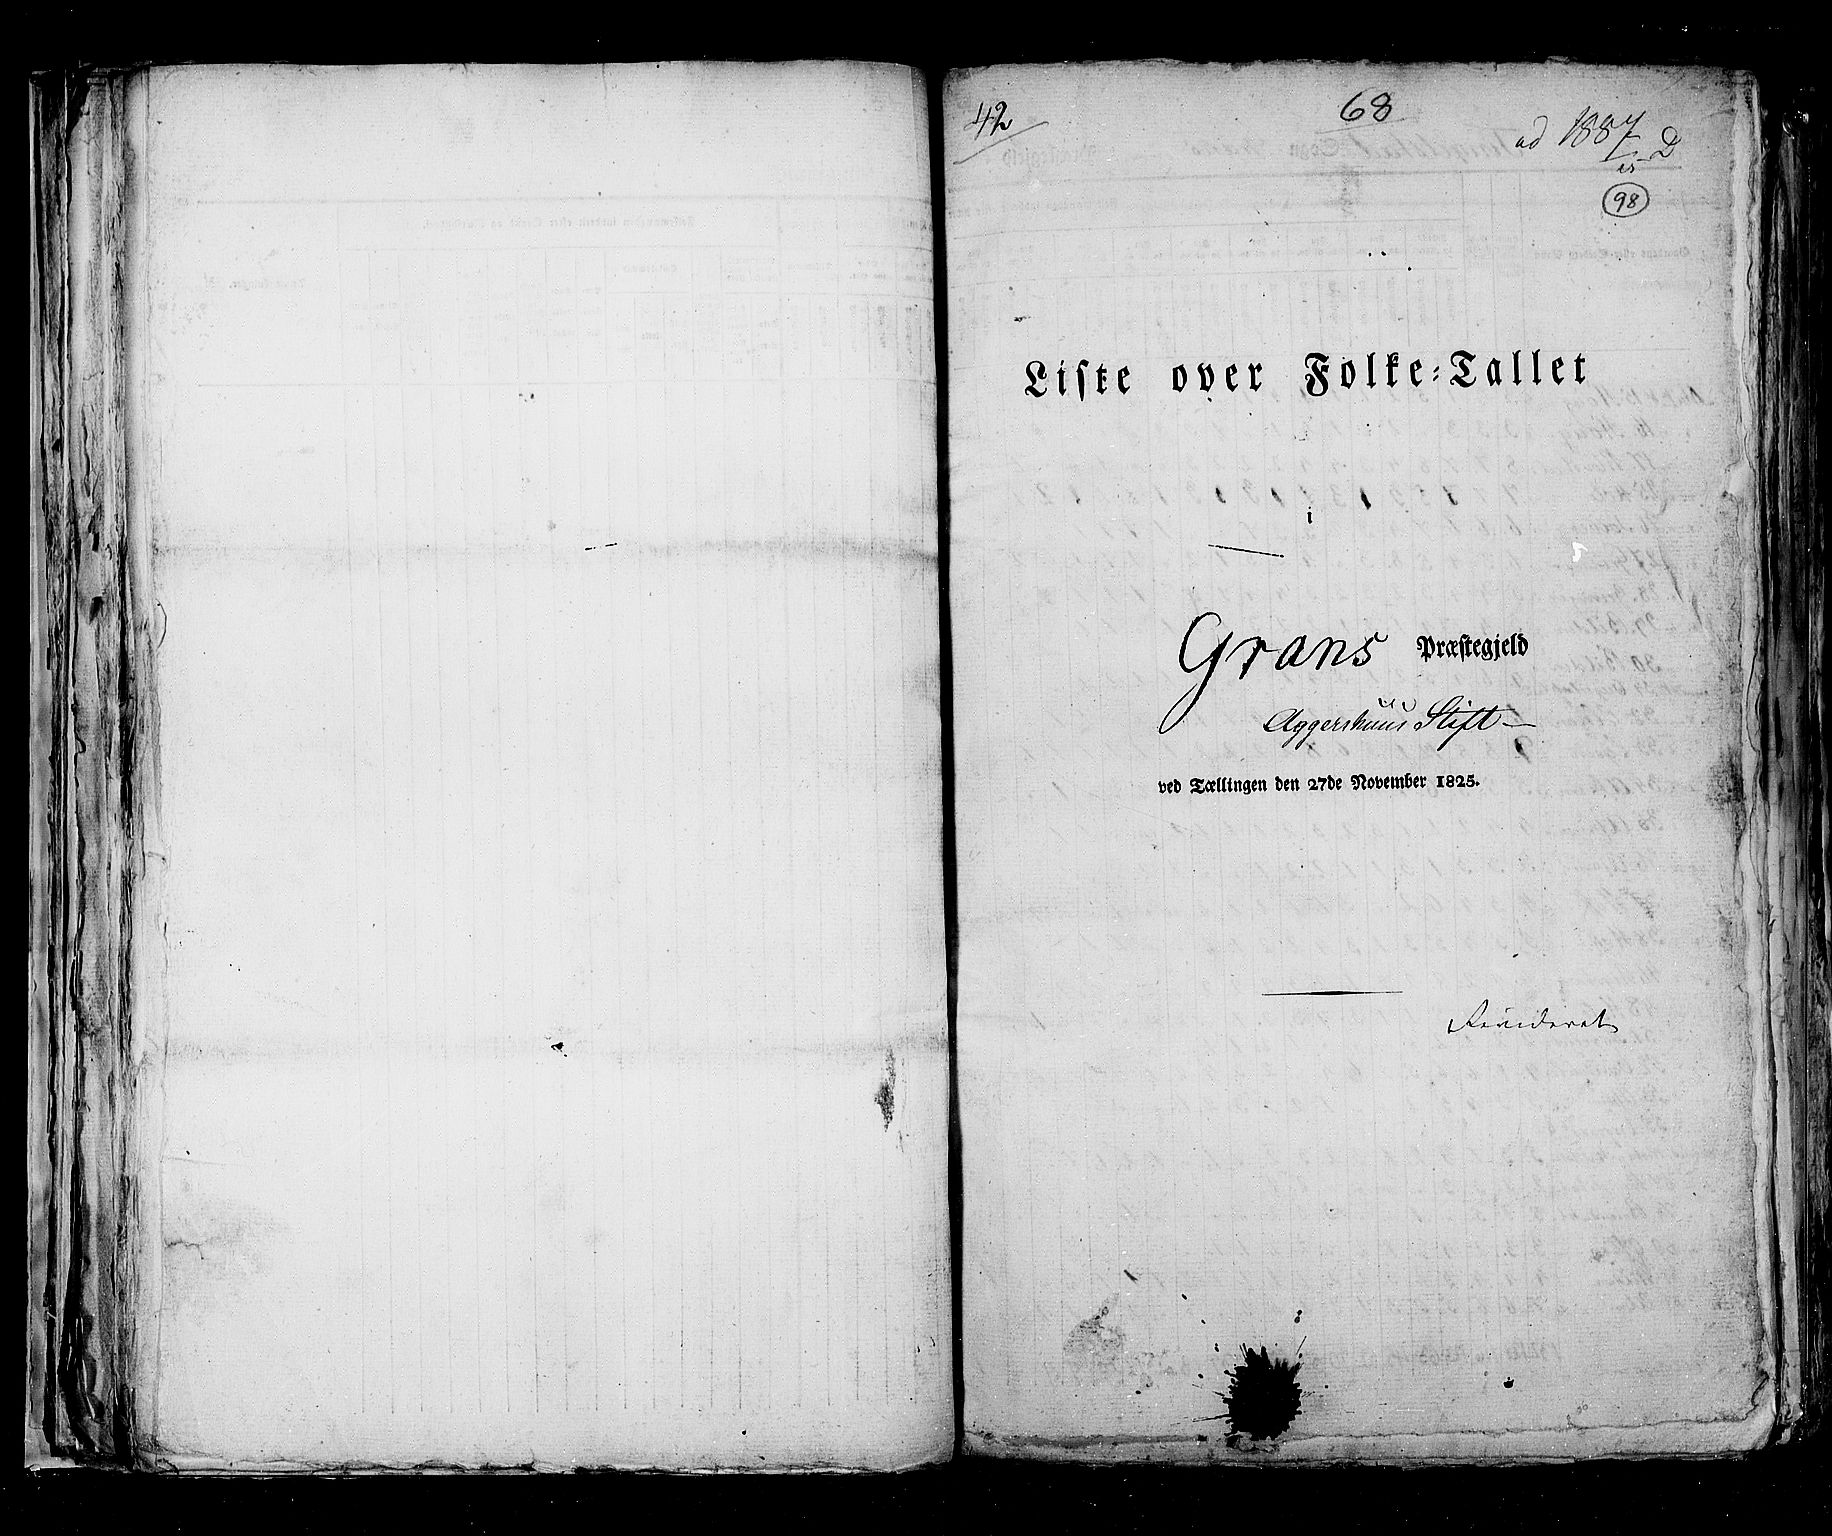 42
68
ad 1887 D
98
Liste over Folke-Tallet
i
Grans Præstegjeld
Aggershuus Stift
ved Tællingen den 27de November 1825.
Revideret